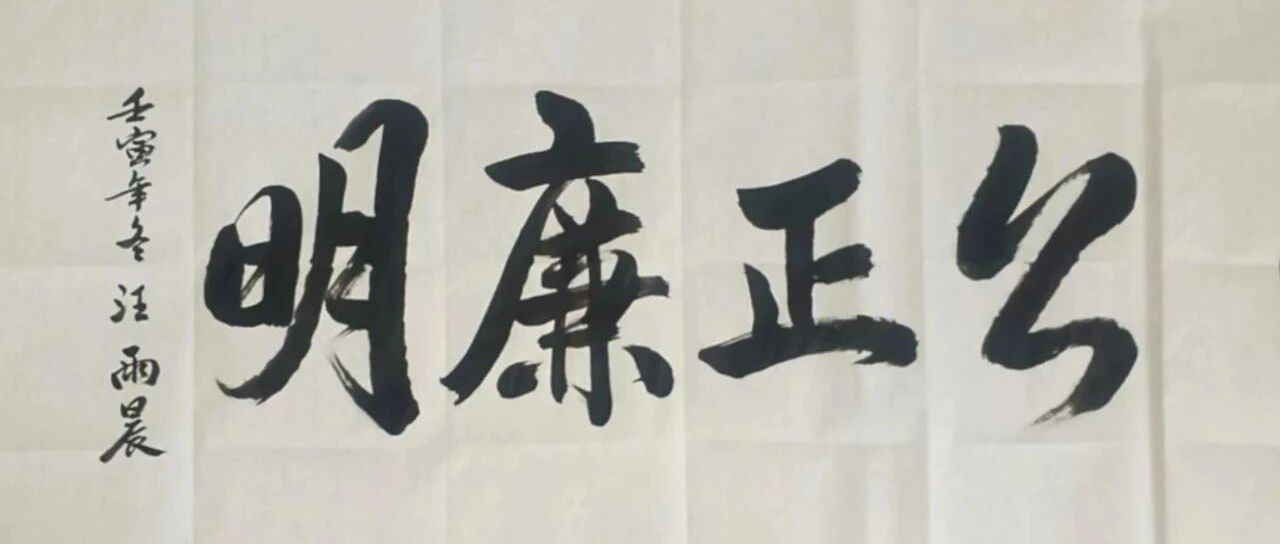 公正廉明
壬寅年冬汪雨晨